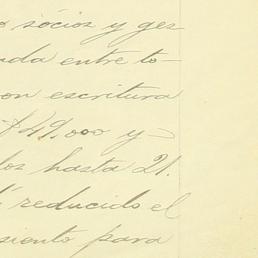 socios y ges
da entre to-
on escritura
$49.000 y
los hasta 21.
reducido el
siento para